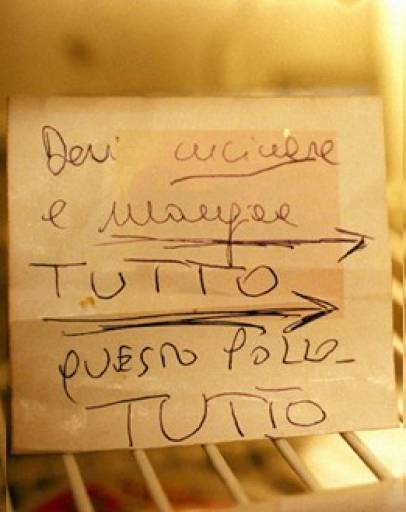 Devi cucinare
e mangiare
TUTTO
QUESTO POLLO
TUTTO